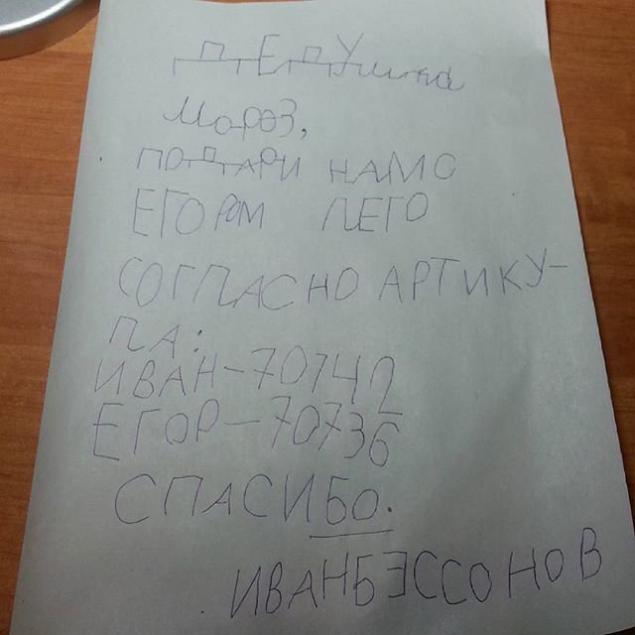 ДЕДУшка
Мороз,
ПОДАРИ НАМ С
ЕГОРОМ ЛЕГО
СОГЛАСНО АРТИКУ-
ЛА:
ИВАН-70742
ЕГОР-70736
СПАСИБО.
ИВАН БЕССОНОВ